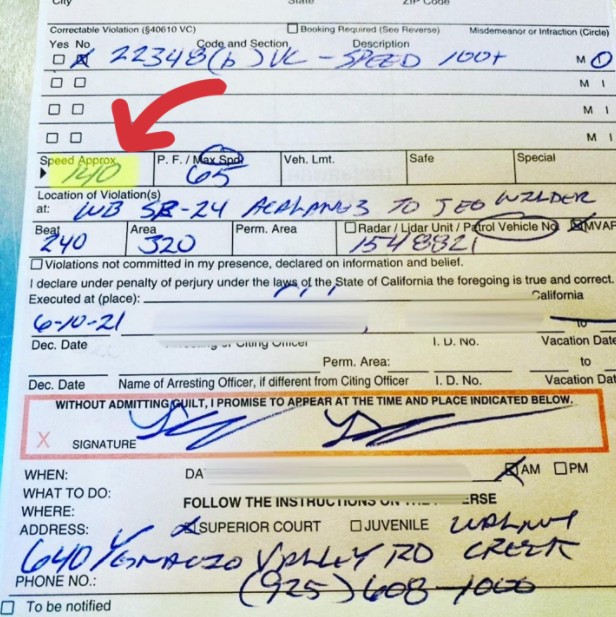 City State ZIP Code
Correctable Violation (§40610 VC) Booking Required (See Reverse) Misdemeanor or Infraction (Circle)
Yes No Code and Section Description
22348(b) VC - SPEED 100+ M I
M I
M I
M I
Speed Approx. P. F. / Max Spd. Veh. Lmt. Safe Special
140 65
Location of Violation(s)
at: WB SR-24 ACALANES TO JEO WILDER
Beat Area Perm. Area Radar / Lidar Unit / Patrol Vehicle No. MVAR
240 320 1548821
Violations not committed in my presence, declared on information and belief.
I declare under penalty of perjury under the laws of the State of California the foregoing is true and correct.
Executed at (place): California
6-10-21 to
Dec. Date Arresting or Citing Officer I. D. No. Vacation Date
Perm. Area: to
Dec. Date Name of Arresting Officer, if different from Citing Officer I. D. No. Vacation Dat
WITHOUT ADMITTING GUILT, I PROMISE TO APPEAR AT THE TIME AND PLACE INDICATED BELOW.
X SIGNATURE
WHEN: DA AM PM
WHAT TO DO: FOLLOW THE INSTRUCTIONS ON THE REVERSE
WHERE: SUPERIOR COURT JUVENILE WALNUT
ADDRESS: 640 YGNACIO VALLEY RD CREEK
PHONE NO.: (925) 608-1000
To be notified